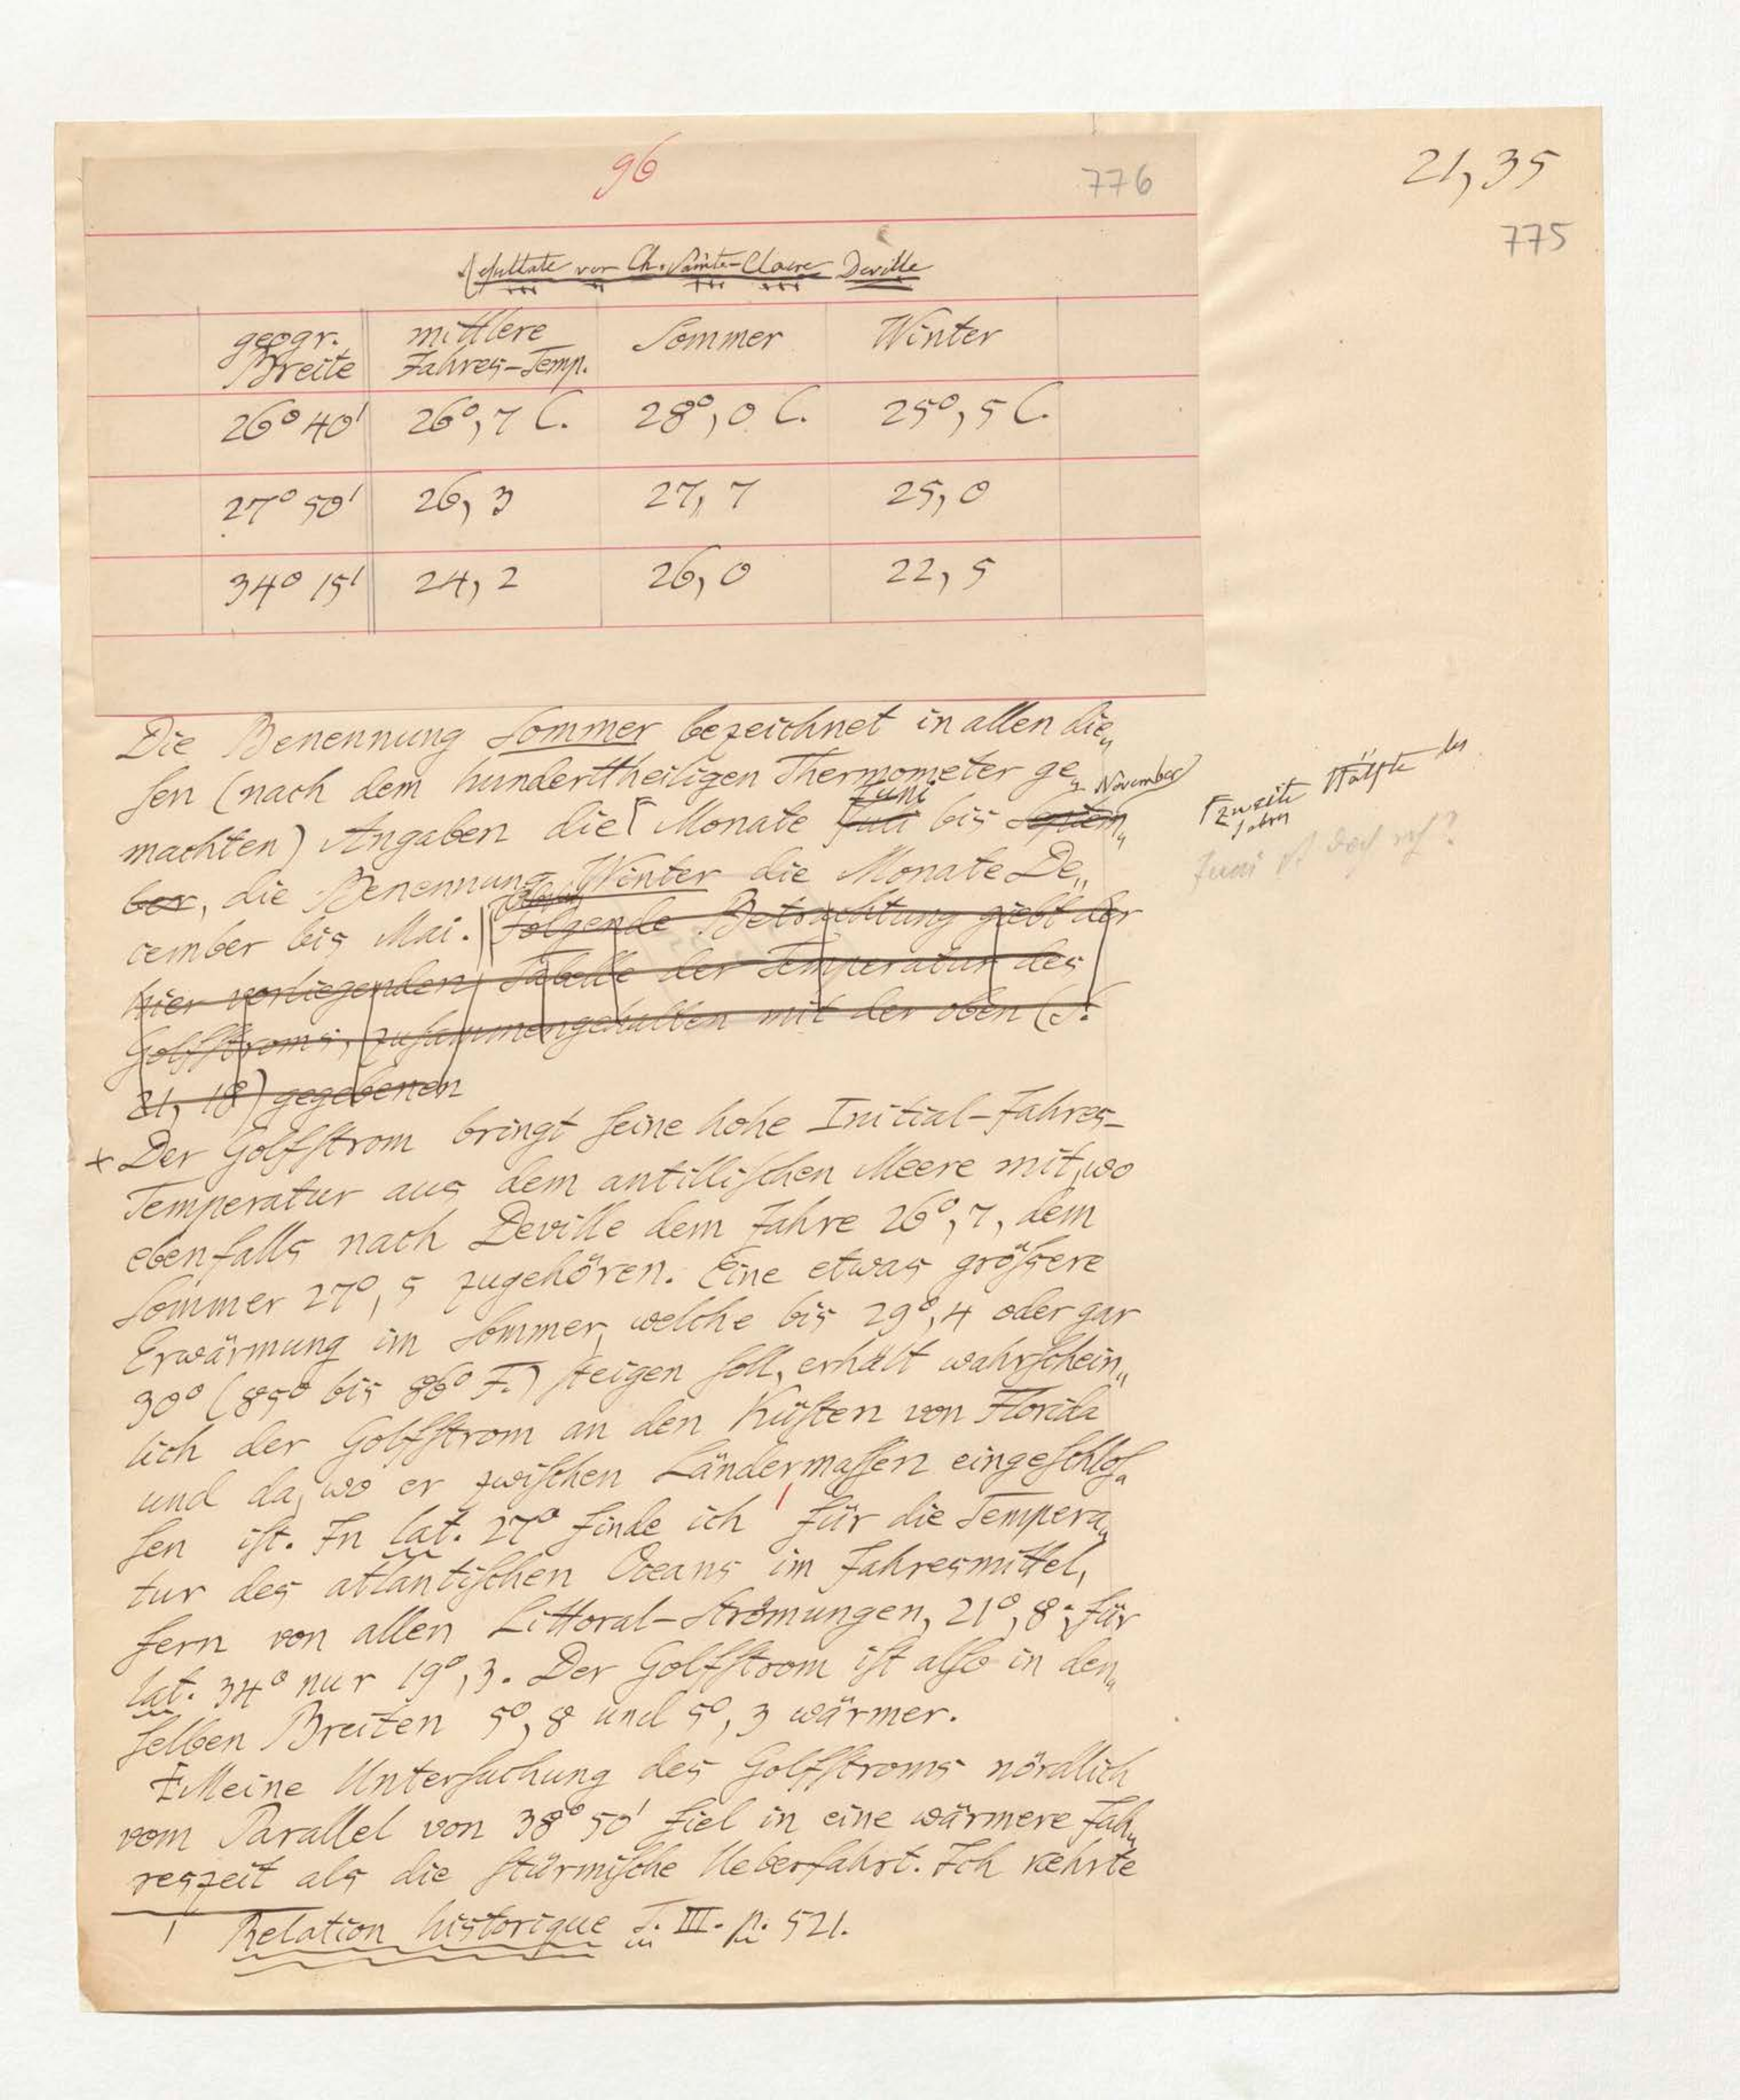 96
776
21,35
775
Resultate von Ch. Sainte-Claire Deville
geogr. Breite | mittlere Jahres-Temp. | Sommer | Winter
26° 40' | 26°,7 C. | 28°,0 C. | 25°,5 C.
27° 50' | 26,3 | 27,7 | 25,0
34° 15' | 24,2 | 26,0 | 22,5
Die Benennung Sommer bezeichnet in allen die„
sen (nach dem hunderttheiligen Thermometer ge„
machten) Angaben die⌈ Monate Juli Juni bis Septem„ November
ber, die Benennung Winter die Monate De„
cember bis Mai. || Folgende Betrachtung giebt der
hier vorliegenden Tabelle der Temperatur des
Golfstroms, zusammengehalten mit der oben (S.
21, 18) gegebenen
⌈zweite Hälfte des
Jahres
Juni ist doch
+ Der Golfstrom bringt seine hohe Initial-Jahres-
Temperatur aus dem antillischen Meere mit, wo
ebenfalls nach Deville dem Jahre 26°,7, dem
Sommer 27°,5 zugehören. Eine etwas größere
Erwärmung im Sommer, welche bis 29°,4 oder gar
30° (85° bis 86° F.) steigen soll, erhält wahrschein„
lich der Golfstrom an den Küsten von Florida
und da, wo er zwischen Ländermassen eingeschlos„
sen ist. In lat. 27° finde ich ' für die Tempera„
tur des atlantischen Oceans im Jahresmittel,
fern von allen Littoral-Strömungen, 21°,8; für
lat. 34° nur 19°,3. Der Golfstrom ist also in den„
selben Breiten 5°,8 und 5°,3 wärmer.
Meine Untersuchung des Golfstroms nördlich
vom Parallel von 38° 50' fiel in eine wärmere Jah„
reszeit als die stürmische Ueberfahrt. Ich kehrte
' Relation historique T. III. p. 521.